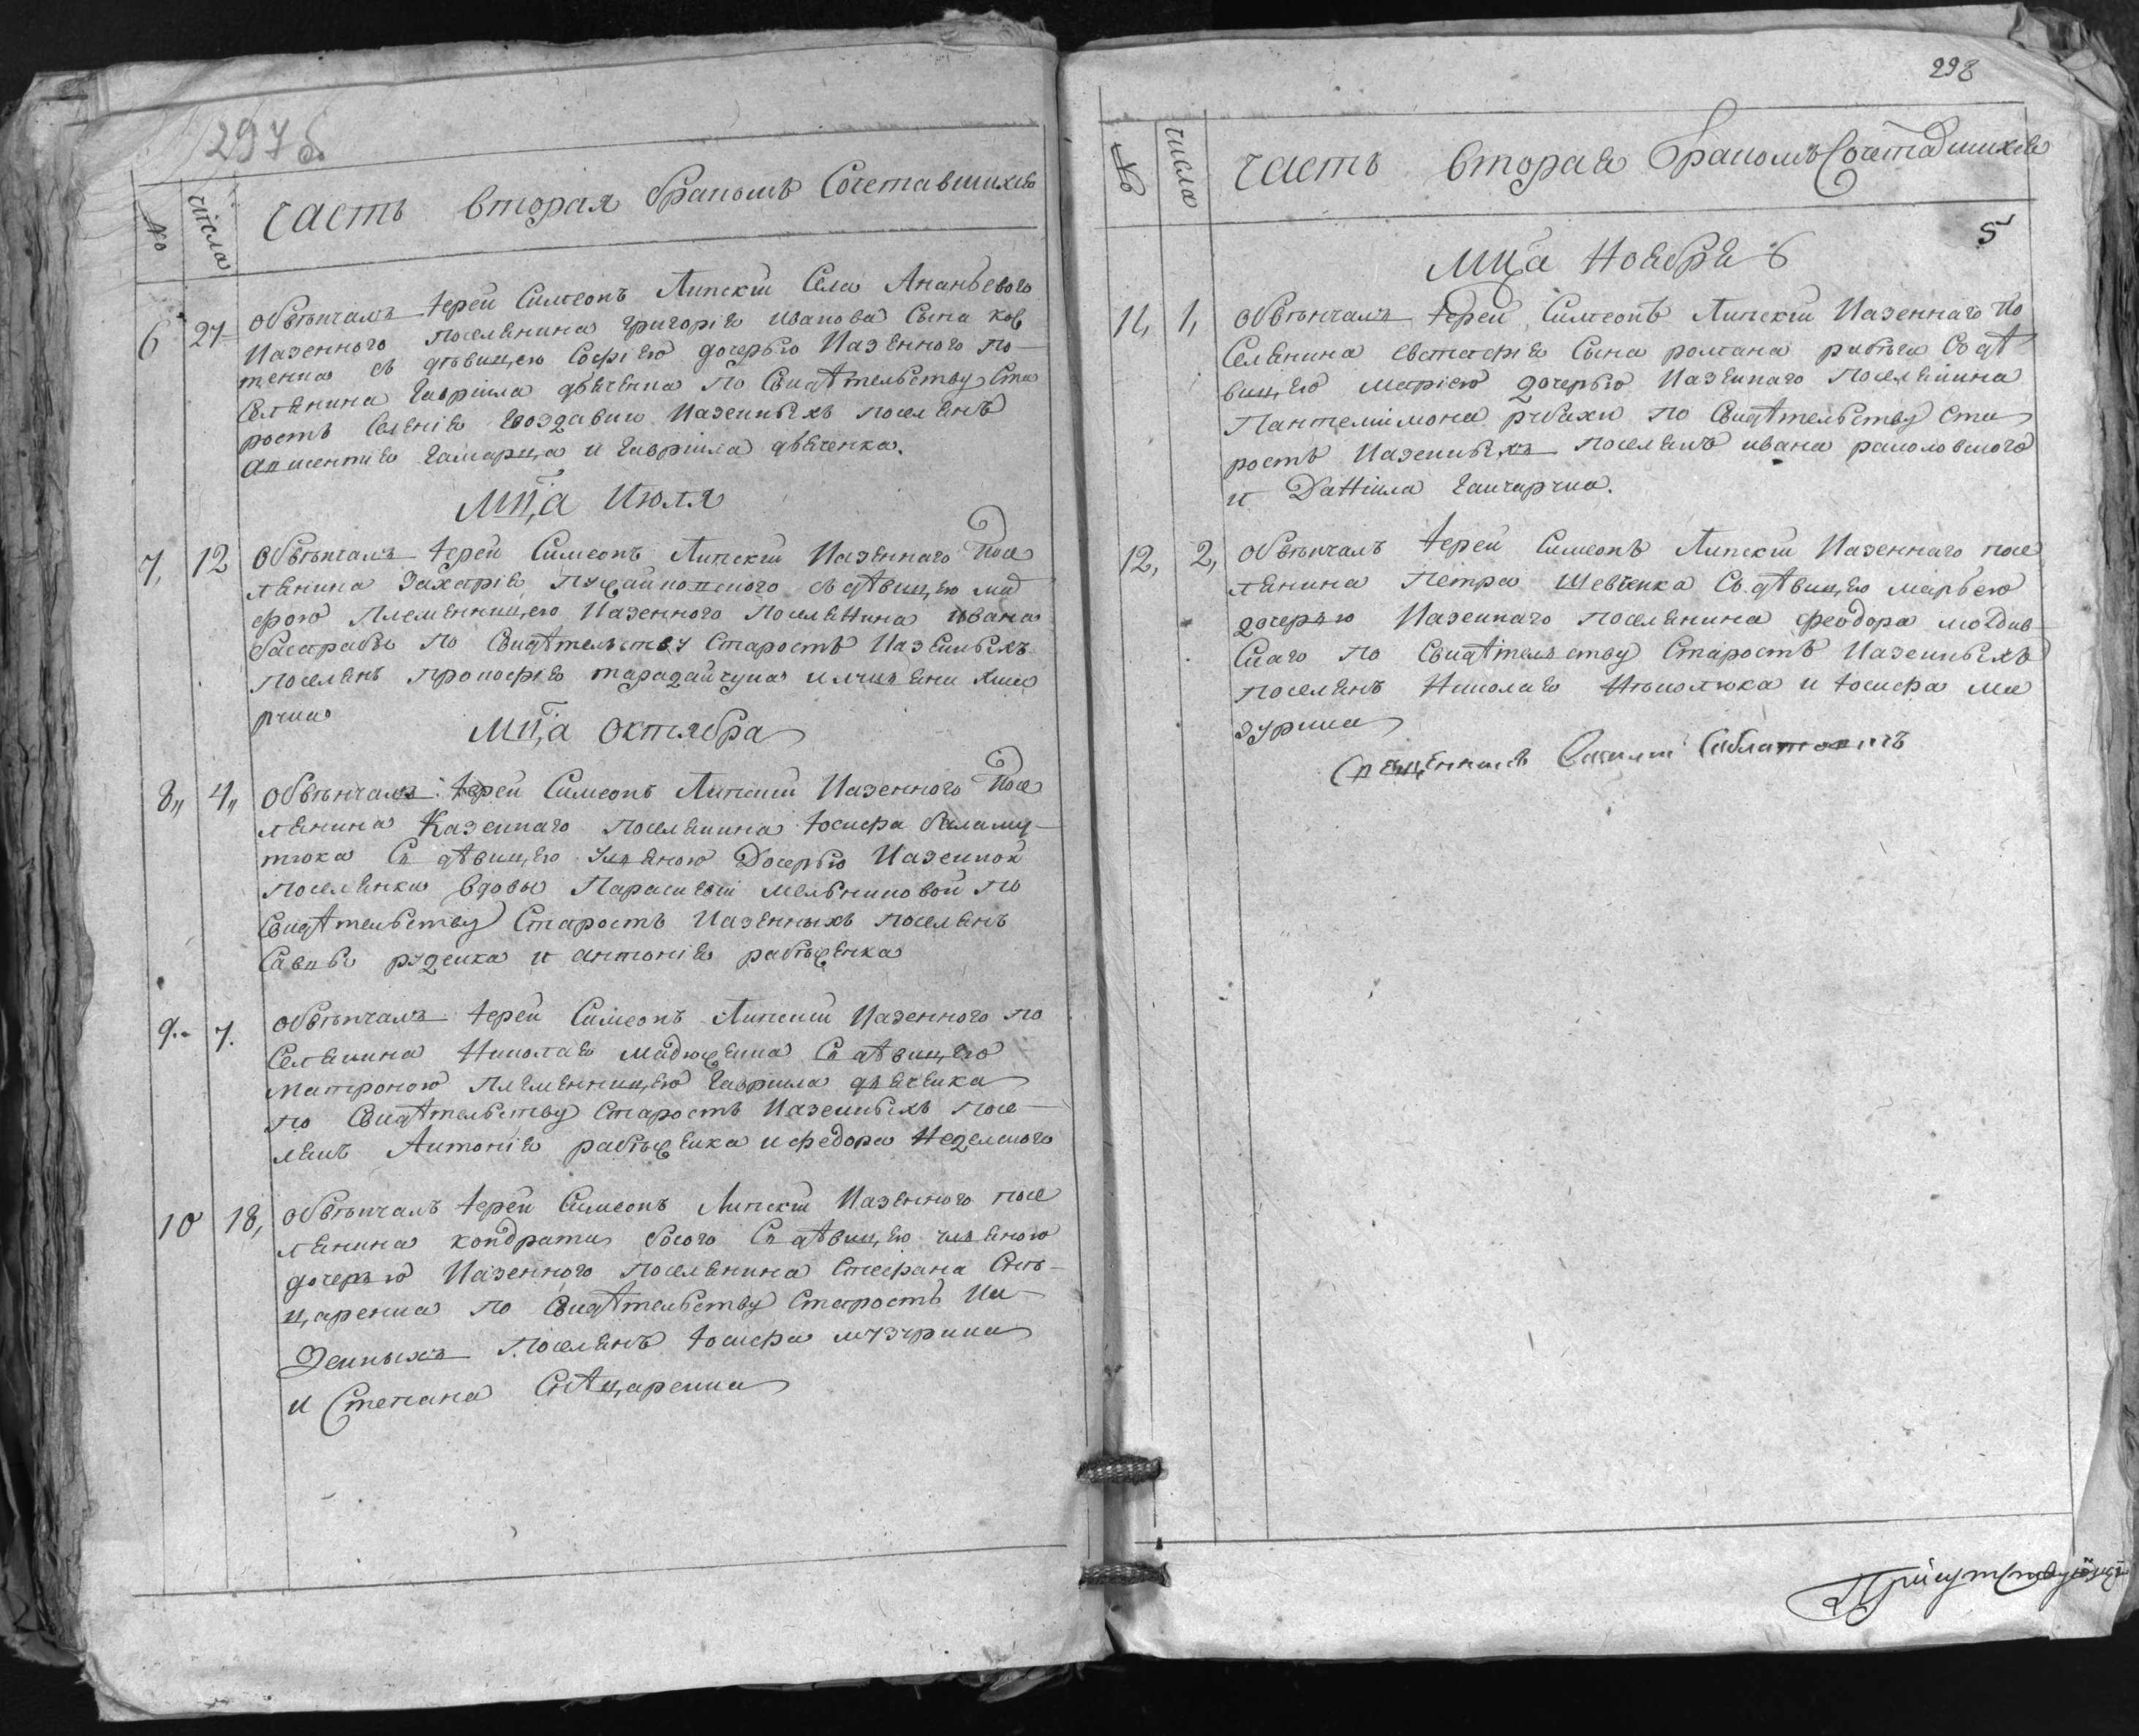 297 б
№ числа Часть вторая бракомъ Сочетавшихся
6 27 Обвѣнчалъ Іерей Симеонъ Липскій Села Ананьевого
казенного поселянина Григорія Иванова Сына ков
тенка съ дѣвицею Софіею дочерью казенного по
селянина Гавріила дяченка по Свидѣтельству Ста
ростъ Селенія Гвоздавки казенныхъ поселянъ
Авксентія Гамарца и Гавріила дяченка.
Мца Июля
7, 12 Обвѣнчалъ Іерей Симеонъ Липскій казеннаго посе
лянина Захарія съ дѣвицею ма
фрою племенницею казенного поселянина Ивана
басарабы по Свидѣтельству Старостъ казенныхъ
поселянъ прокофія тарадайчука и
рчка
Мца Октября
8,, 4,, Обвѣнчалъ Іерей Симеонъ Липскій казенного посе
лянина казеннаго поселянина Іосифа баламу
тюка Съ дѣвицею уляною Дочерью казенной
поселянки вдовы Параскевіи мельниковой по
Свидѣтельству Старостъ казенныхъ поселянъ
Саввы руденка и антонія рабѣщенка
9.. 7. Обвѣнчалъ Іерей Симеонъ Липскій казенного по
селянина Николая Мадющенка Съ дѣвицею
Матроною племенницею Гавриила дяченка
по Свидѣтельству Старостъ казенныхъ посе
лянъ Антонія рабѣщенка и федора Неделского
10 18, Обвѣнчалъ Іерей Симеонъ Липскій казенного посе
лянина кондрата босого Съ дѣвицею уляною
дочерью казенного поселянина Стефана Снѣ
царенка по Свидѣтельству Старостъ ка
зенныхъ поселянъ Іосифа мазурика
и Степана Снѣцаренка
298
№ числа Часть вторая Бракомъ Сочетавшихся
5
Мца Ноября
11, 1, Обвѣнчалъ Іерей Симеонъ Липскій казеннаго по
селянина Евстафія Сына романа рябѣя Съ дѣ
вицею Маріею дочерью казеннаго поселянина
Пантелимона рябихи по Свидѣтельству Ста
ростъ казенныхъ поселянъ ивана раколовского
и Даніила Ганчарчка.
12, 2, Обвѣнчалъ Іерей Симеонъ Липскій казеннаго посе
лянина Петра Шевченка Съ дѣвицею марьею
дочерью казеннаго поселянина феодора молдав
скаго по Свидѣтельству Старостъ казенныхъ
поселянъ Николая Никитюка и Іосифа ма
зурика
Священникъ
Присутствующій